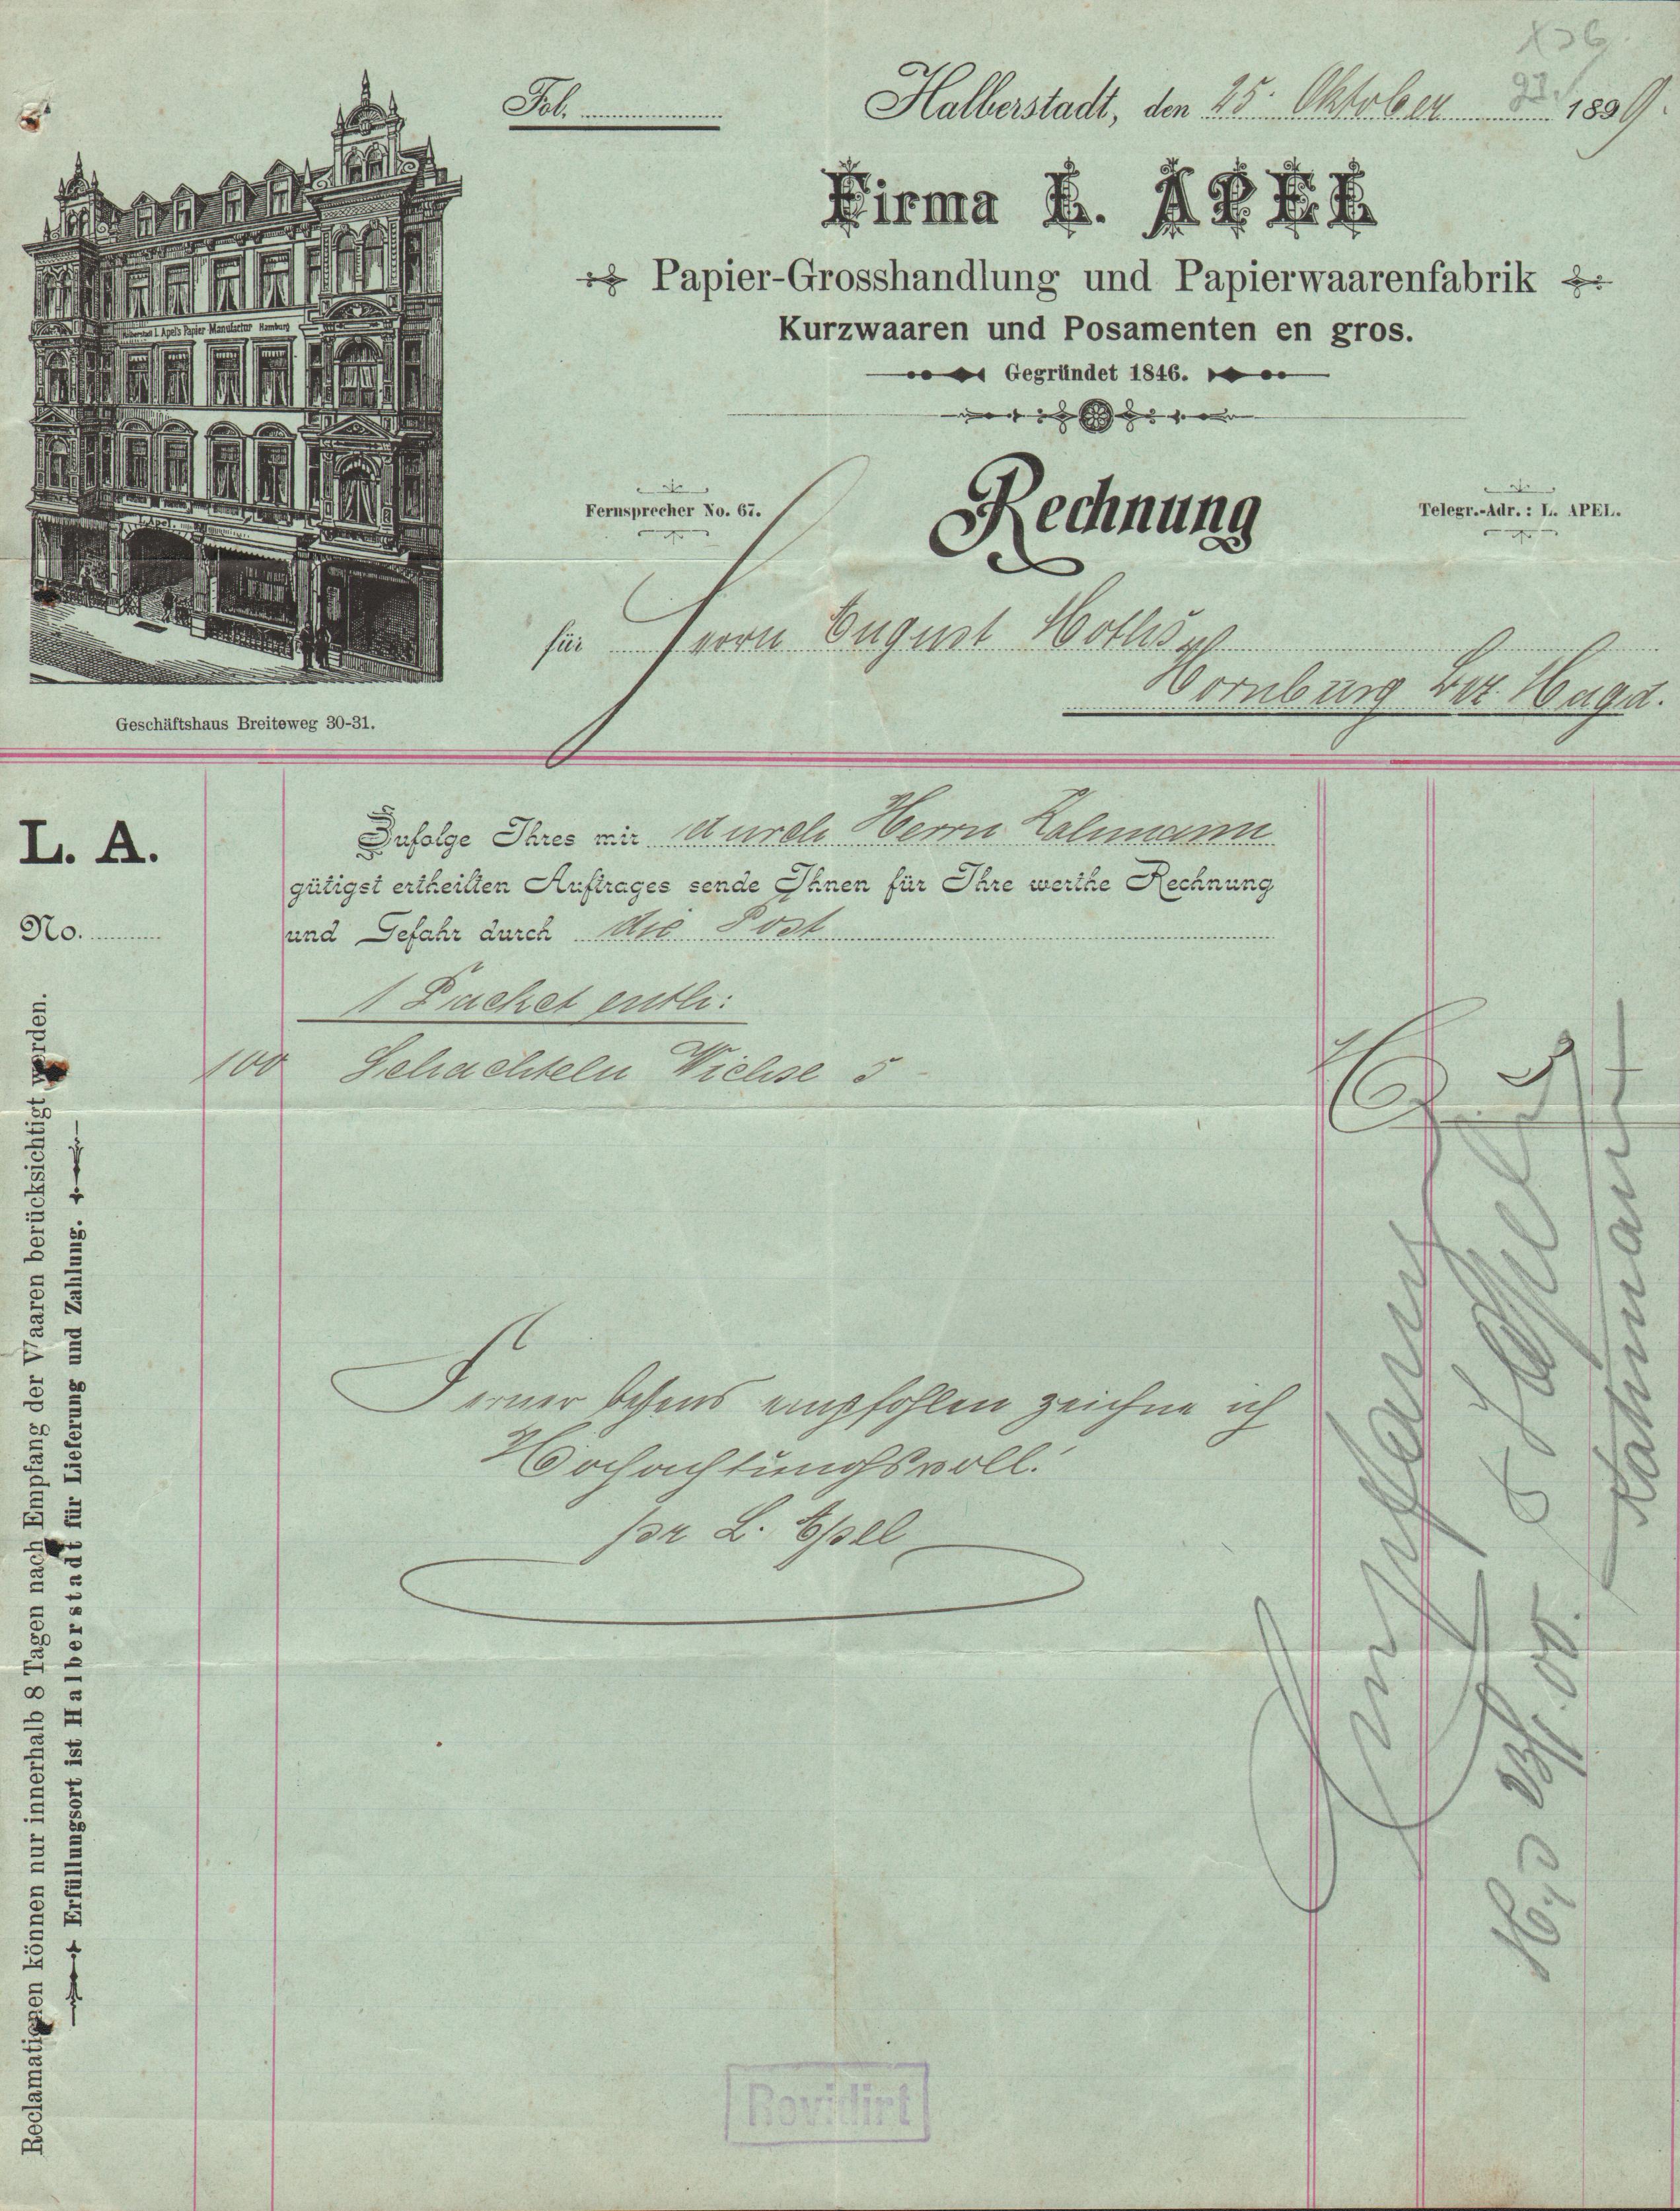 Fol.
Halberstadt, den 25. Oktober 1899.
Firma L. APEL
Papier-Grosshandlung und Papierwaarenfabrik
Kurzwaaren und Posamenten en gros.
Gegründet 1846.
Rechnung
Fernsprecher No. 67.
Telegr.-Adr.: L. APEL.
Halberstadt L. Apel's Papier-Manufactur Hamburg
L. Apel.
für Herrn August
Hornburg Bez. Magd.
Geschäftshaus Breiteweg 30-31.
L. A.
No.
Zufolge Ihres mir durch Herrn
gütigst ertheilten Auftrages sende Ihnen für Ihre werthe Rechnung
und Gefahr durch die Post
1 Packet enth:
100 Schachteln Wichse 5
M 5
Ferner bestens empfohlen zeichne ich
Hochachtungsvoll!
pr L. Apel
Reclamationen können nur innerhalb 8 Tagen nach Empfang der Waaren berücksichtigt werden.
Erfüllungsort ist Halberstadt für Lieferung und Zahlung.
Empfangen
23/1.00.
Revidirt